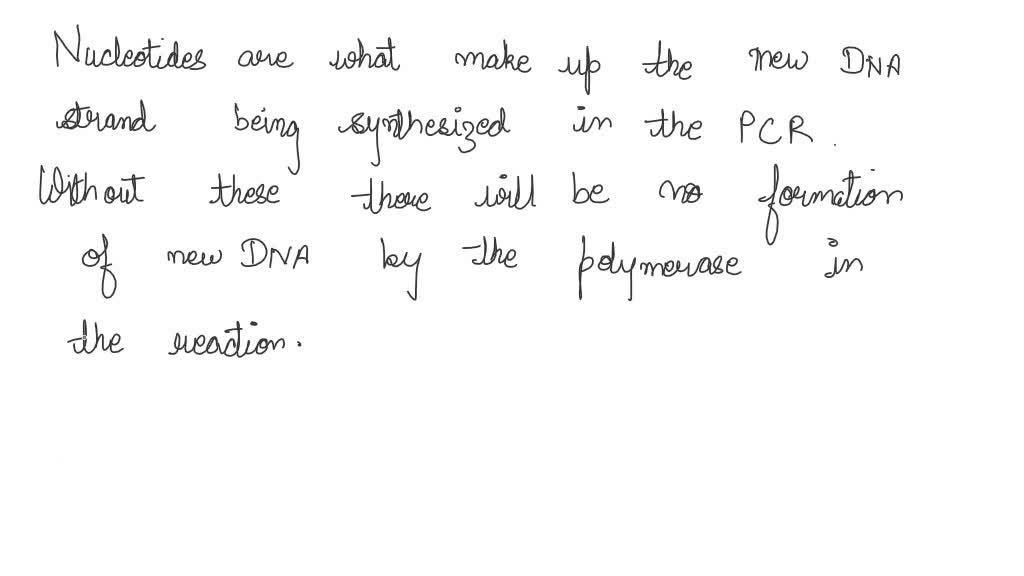 Nucleotides are what make up the new DNA
strand being synthesized in the PCR.
Without these there will be no formation
of new DNA by the polymerase in
the reaction.